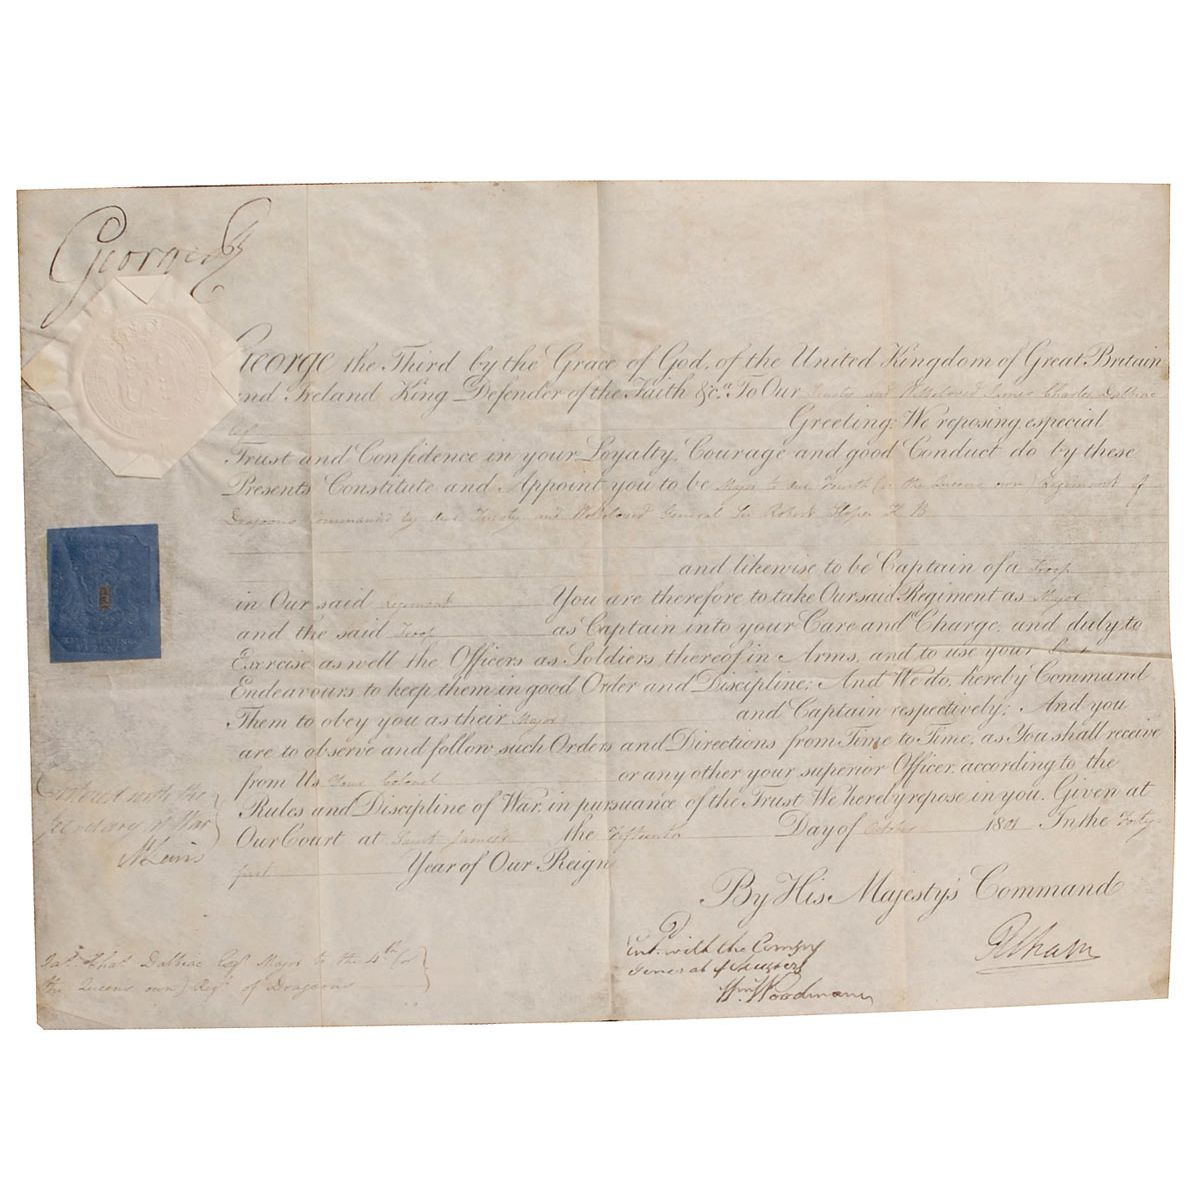 George R
George the Third by the Grace of God, of the United Kingdom of Great Britain
and Ireland King Defender of the Faith &c.a To Our Trusty and Welbeloved James Charles Dalbiac
Esq Greeting: We reposing especial
Trust and Confidence in your Loyalty, Courage and good Conduct do by these
Presents Constitute and Appoint you to be Major to Our Fourth (or the Queens own) Regiment of
Dragoons Commanded by Our Trusty and Welbeloved General Sir Robert Sloper K B
and likewise to be Captain of a Troop
in Our said Regiment You are therefore to take Our said Regiment as Major
and the said Troop as Captain into your Care and Charge, and duly to
Exercise as well the Officers as Soldiers thereof in Arms, and to use your best
Endeavours to keep them in good Order and Discipline; And We do hereby Command
Them to obey you as their Major and Captain respectively; And you
are to observe and follow such Orders and Directions from Time to Time, as You shall receive
from Us Your Colonel or any other your superior Officer, according to the
Rules and Discipline of War, in pursuance of the Trust We hereby repose in you. Given at
Our Court at Saint James's the Fifteenth Day of October 1801 In the Forty-
first Year of Our Reign
By His Majesty's Command
Pelham
Entered with the
Secretary at War
M Lewis
Entd. with the Comssy
General of Musters
Wm. Woodman
Jas. Chas. Dalbiac Esq Major to the 4th (or
the Queens own) Regt. of Dragoons